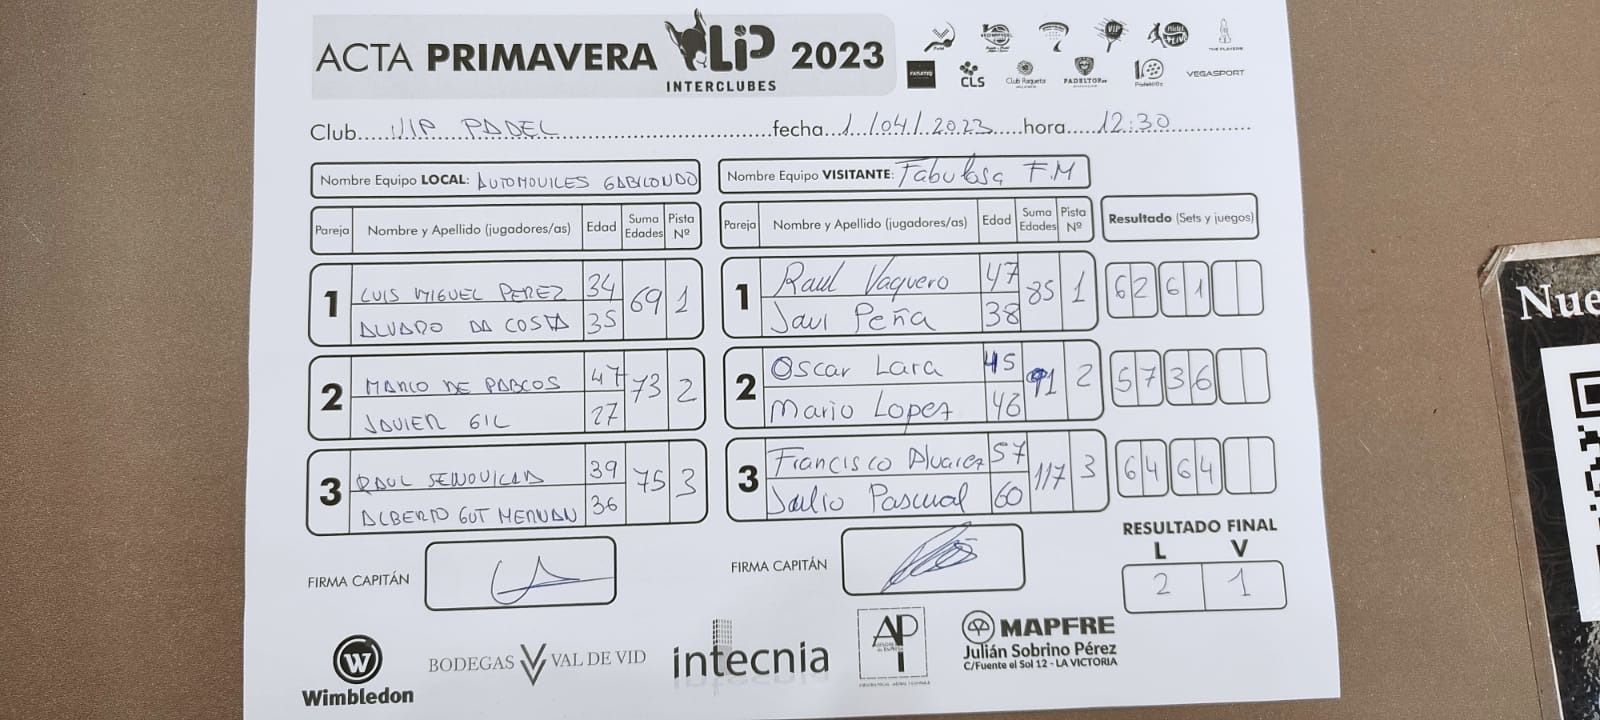 ACTA PRIMAVERA LIP 2023
INTERCLUBES
VIP
THE PLAYERS
CLS
Club Raqueta
PADELTOP
VEGASPORT
Club VIP PADEL fecha 1/04/2023 hora 12:30
Nombre Equipo LOCAL: AUTOMOVILES GABILONDO
Nombre Equipo VISITANTE: Fabulosa F.M
Pareja Nombre y Apellido (jugadores/as) Edad Suma Edades Pista Nº
Pareja Nombre y Apellido (jugadores/as) Edad Suma Edades Pista Nº
Resultado (Sets y juegos)
1 LUIS MIGUEL PEREZ 34 69 1
ALVARO DA COSTA 35
1 Raul Vaquero 47 85 1 62 61
Javi Peña 38
2 MARCO DE PABLOS 47 73 2
JAVIER GIL 27
2 Oscar Lara 45 91 2 57 36
Mario Lopez 46
3 RAUL 39 75 3
ALBERTO GUT 36
3 Francisco Alvarez 57 117 3 64 64
Julio Pascual 60
FIRMA CAPITÁN
FIRMA CAPITÁN
RESULTADO FINAL
L V
2 1
W
Wimbledon
BODEGAS VAL DE VID
intecnia
AP
MAPFRE
Julián Sobrino Pérez
C/Fuente el Sol 12 - LA VICTORIA
Nue